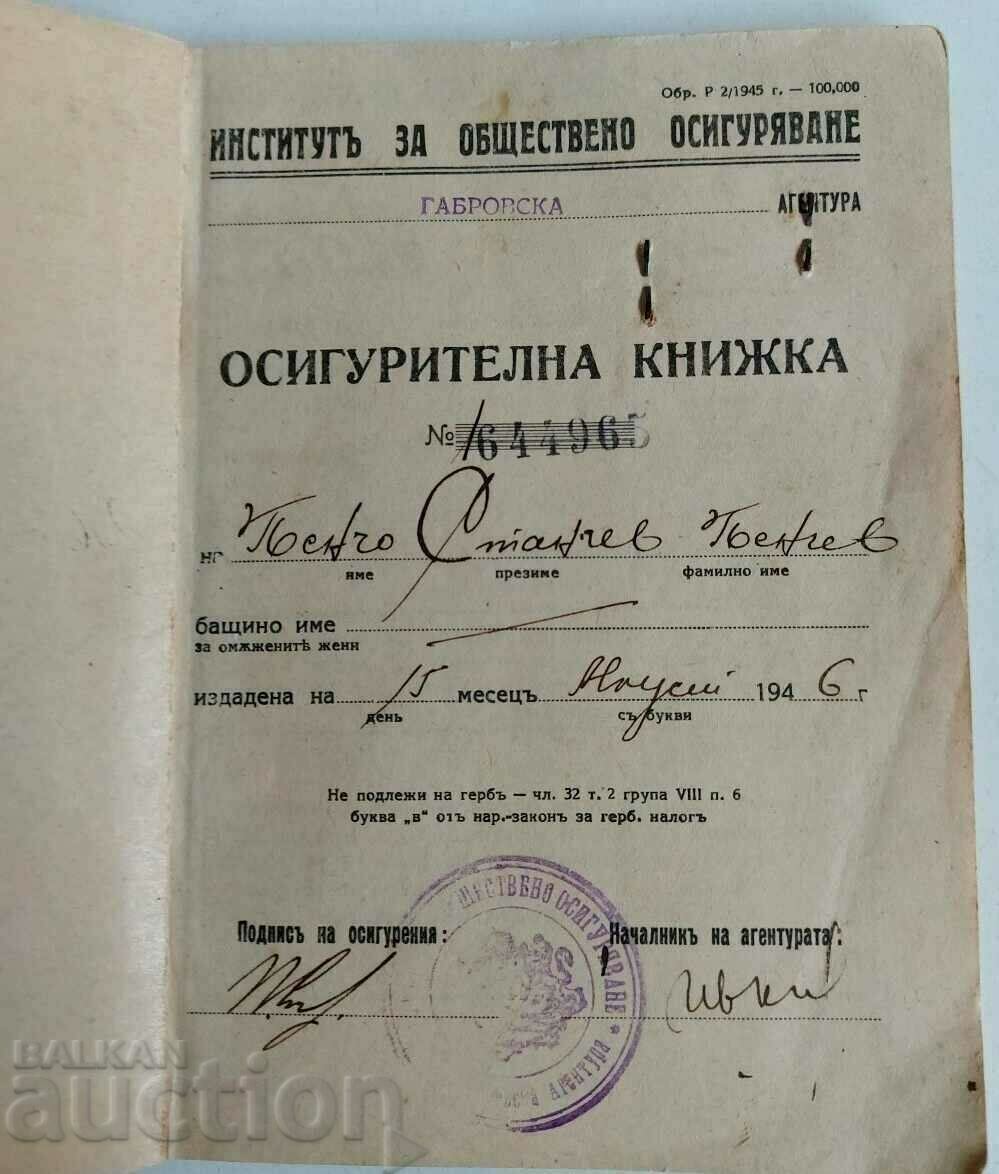 Обр. Р 2/1945 г. — 100,000
ИНСТИТУТЪ ЗА ОБЩЕСТВЕНО ОСИГУРЯВАНЕ
ГАБРОВСКА АГЕНТУРА
ОСИГУРИТЕЛНА КНИЖКА
№ 644965
на Пенчо Станчев Пенчев
име презиме фамилно име
бащино име
за омѫженитѣ жени
издадена на 15 месецъ Август 1946 г
день съ букви
Не подлежи на гербъ — чл. 32 т. 2 група VIII п. 6
буква „в" отъ нар.-законъ за герб. налогъ
ОБЩЕСТВЕНО ОСИГУРЯВАНЕ * АГЕНТУРА
Подписъ на осигурения: Началникъ на агентурата:
BALKAN
auction